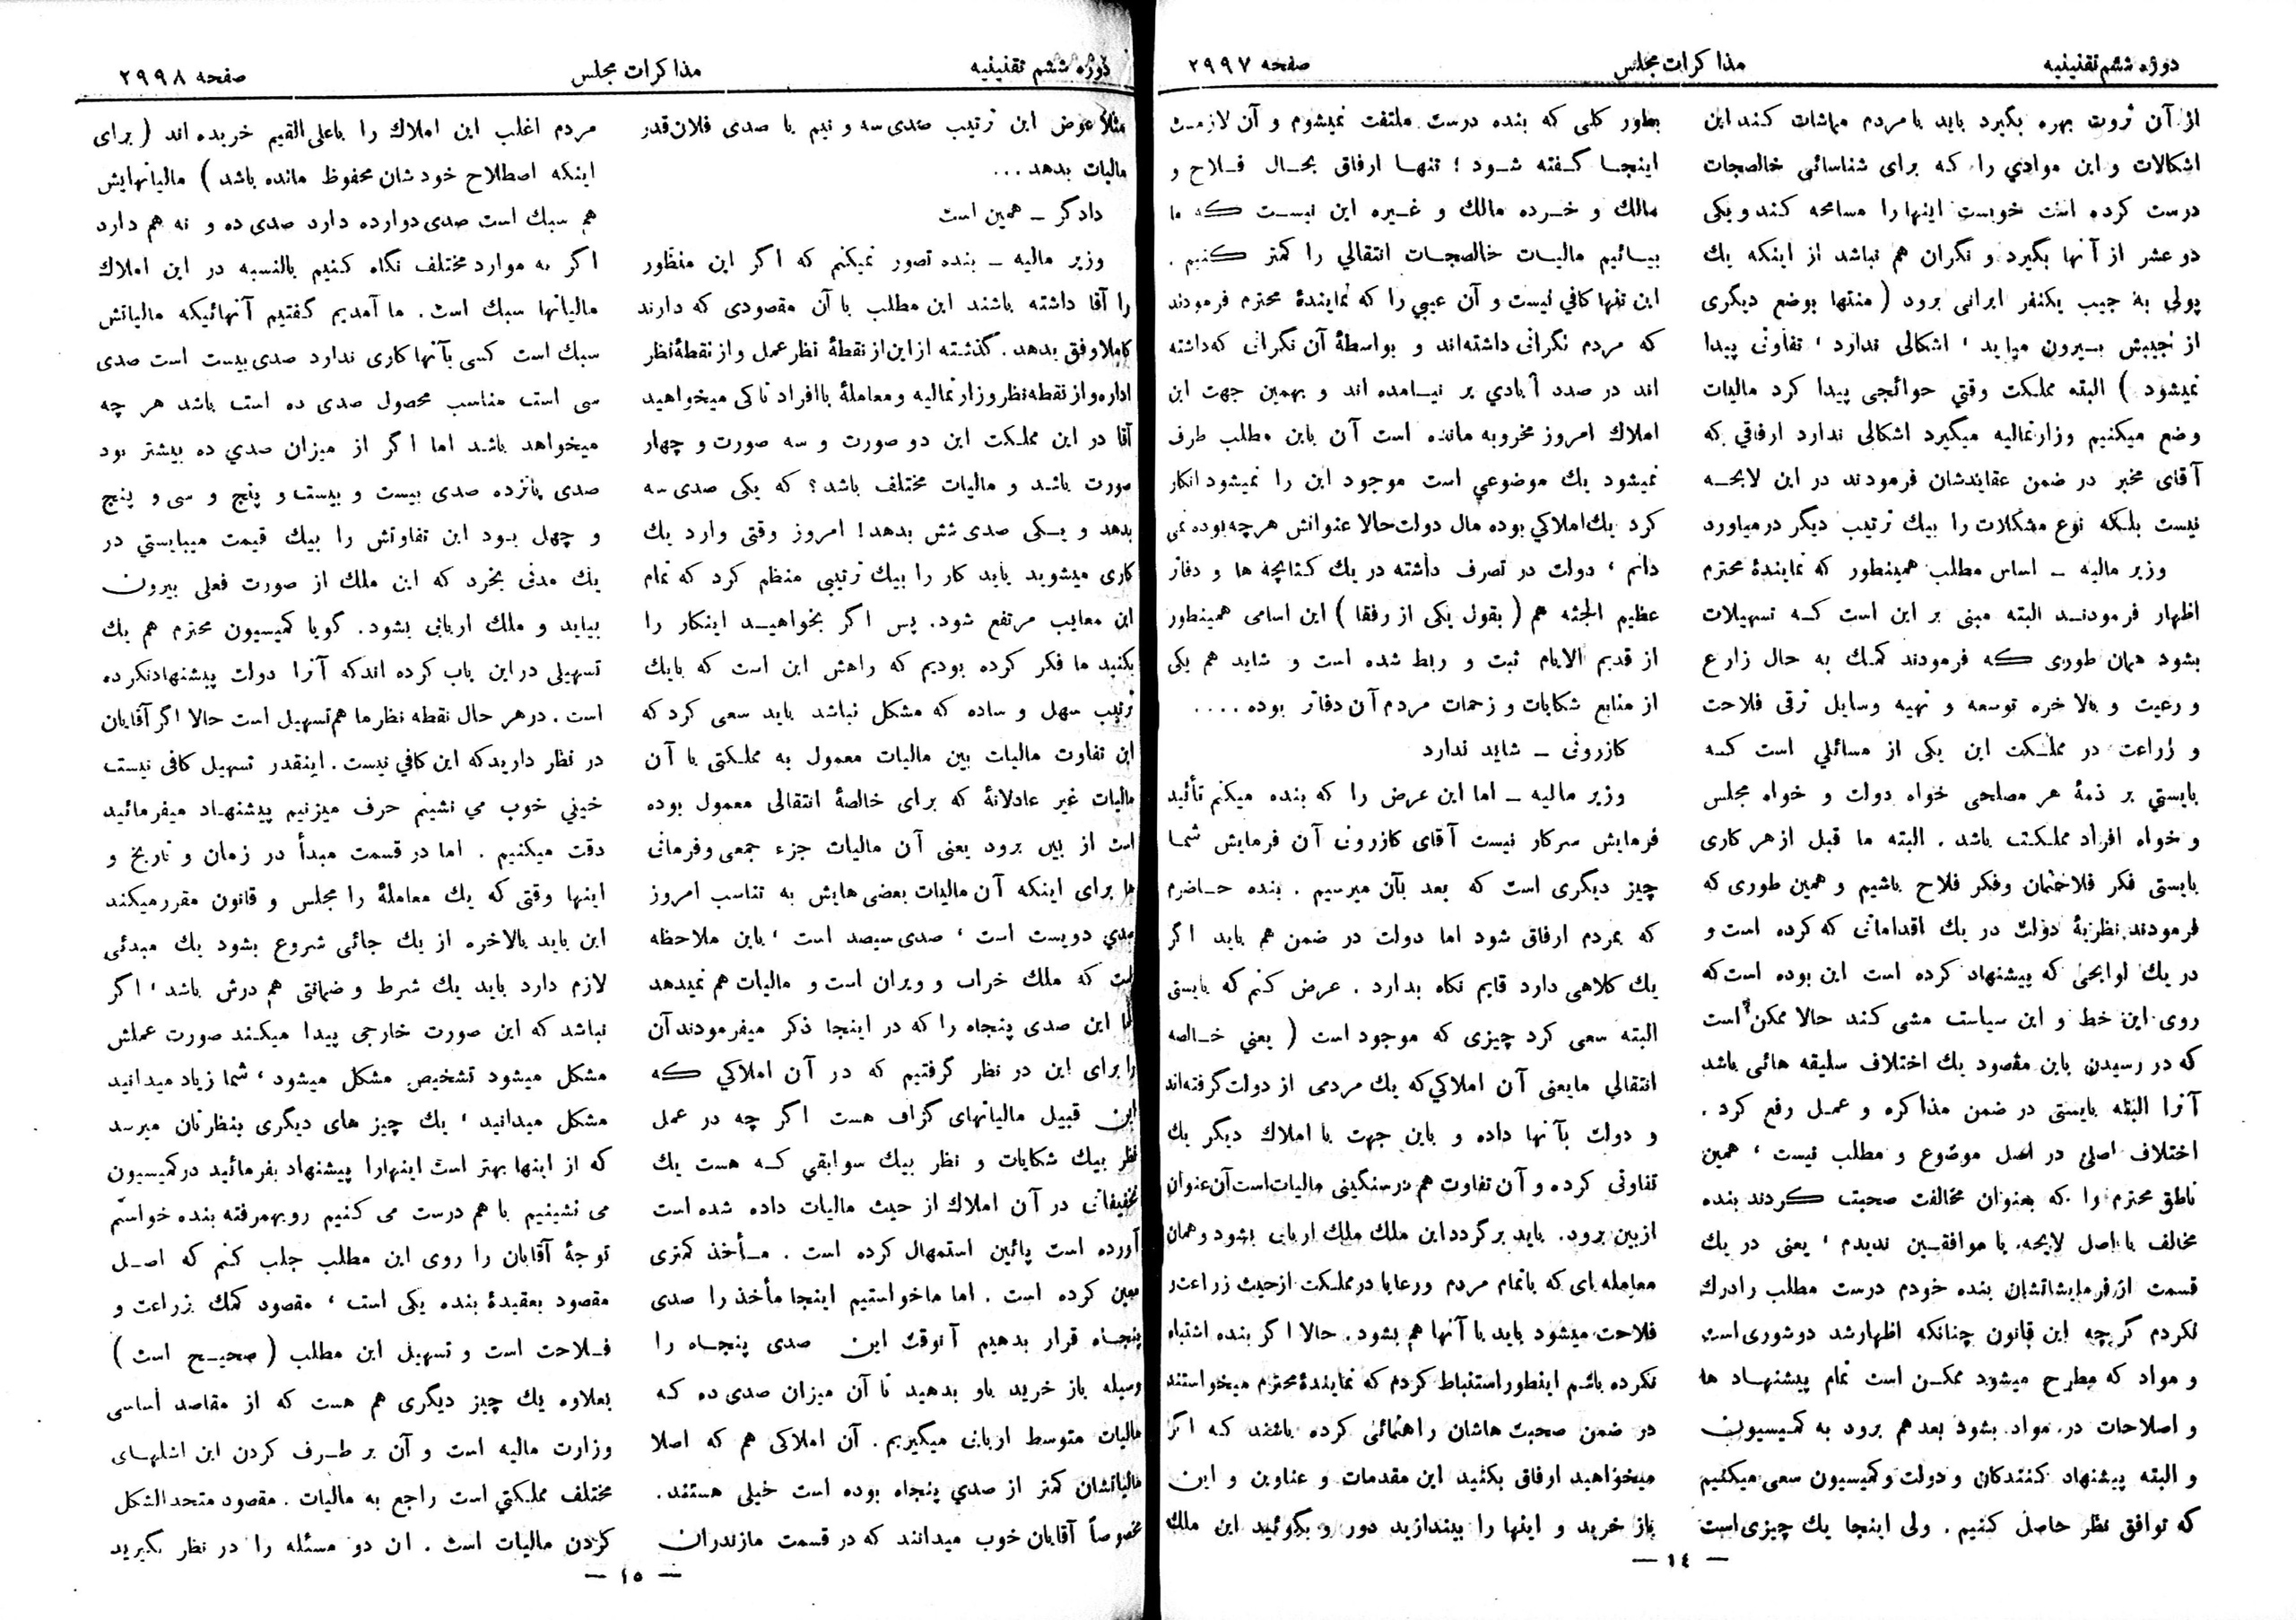 دوره ششم تقنینیه
مذاکرات مجلس
صفحه ۲۹۹۷
از آن ثروت بهره بگیرد باید با مردم مماشات کند این
اشکالات و این موادي را که برای شناسائی خالصجات
درست کرده است خوبست اینها را مسامحه کند و یکی
دو عشر از آنها بگیرد و نگران هم نباشد از اینکه یك
پولی به جیب یکنفر ایرانی برود ( منتها بوضع دیگری
از جیبش بیرون میاید ، اشکالی ندارد ، تفاوتی پیدا
نمیشود ) البته مملکت وقتي حوائجی پیدا کرد مالیات
وضع میکنیم وزارتمالیه میگیرد اشکالی ندارد ارفاقي که
آقای مخبر در ضمن عقایدشان فرمودند در این لایحه
نیست بلکه نوع مشکلات را بیك ترتیب دیگر درمیاورد
وزیر مالیه ــ اساس مطلب همینطور که نمایندهٔ محترم
اظهار فرمودند البته مبنی بر این است که تسهیلات
بشود همان طوری که فرمودند کمك به حال زارع
و رعیت و بالاخره توسعه و تهیه وسایل ترقی فلاحت
و زراعت در مملکت این یکی از مسائلي است که
بایستي بر ذمهٔ هر مصلحی خواه دولت و خواه مجلس
و خواه افراد مملکت باشد . البته ما قبل از هر کاری
بایستی فکر فلاحتمان وفکر فلاح باشیم و همین طوری که
فرمودند نظریهٔ دولت در یك اقداماتی که کرده است و
در یك لوایحی که پیشنهاد کرده است این بوده است که
روی این خط و این سیاست مشی کند حالا ممکن است
که در رسیدن باین مقصود یك اختلاف سلیقه هائی باشد
آنرا البته بایستی در ضمن مذاکره و عمل رفع کرد .
اختلاف اصلی در اصل موضوع و مطلب نیست ، همین
ناطق محترم را که بعنوان مخالفت صحبت کردند بنده
مخالف با اصل لایحه. با موافقین ندیدم ، یعنی در یك
قسمت از فرمایشاتشان بنده خودم درست مطلب را درك
نکردم گرچه این قانون چنانکه اظهار شد دو شوری است
و مواد که مطرح میشود ممکن است تمام پیشنهاد ها
و اصلاحات در مواد بشود بعد هم برود به کمیسیون
و البته پیشنهاد کنندگان و دولت و کمیسیون سعی میکنیم
که توافق نظر حاصل کنیم . ولی اینجا یك چیزی است
بطور کلی که بنده درست ملتفت نمیشوم و آن لازمست
اینجا گفته شود ؛ تنها ارفاق بحال فلاح و
مالك و خرده مالك و غیره این نیست که ما
بیائیم مالیات خالصجات انتقالي را کمتر کنیم .
این تنها کافي نیست و آن عیبي را که نمایندهٔ محترم فرمودند
که مردم نگرانی داشته‌اند و بواسطهٔ آن نگرانی که داشته
اند در صدد آبادي بر نیامده اند و بهمین جهت این
املاك امروز مخروبه مانده است آن باین مطلب طرف
نمیشود یك موضوعي است موجود این را نمیشود انکار
کرد یك املاکي بوده مال دولت حالا عنوانش هرچه بوده نمی
دانم ، دولت در تصرف داشته در یك کتابچه ها و دفاتر
عظیم الجثه هم ( بقول یکی از رفقا ) این اسامی همینطور
از قدیم الایام ثبت و ربط شده است و شاید هم یکی
از منابع شکایات و زحمات مردم آن دفاتر بوده ....
کازرونی ــ شاید ندارد
وزیر مالیه ــ اما این عرض را که بنده میکنم تأئید
فرمایش سرکار نیست آقای کازرونی آن فرمایش شما
چیز دیگری است که بعد بآن میرسیم . بنده حاضرم
که بمردم ارفاق شود اما دولت در ضمن هم باید اگر
یك کلاهی دارد قایم نگاه بدارد . عرض کنم که بایستی
البته سعی کرد چیزی که موجود است ( یعني خالصه
انتقالي مایعنی آن املاکي که یك مردمی از دولت گرفته‌اند
و دولت بآنها داده و باین جهت با املاك دیگر یك
تفاوتی کرده و آن تفاوت هم در سنگینی مالیات است آن عنوان
ازبین برود. باید برگردد این ملك ملك اربابی بشود و همان
معامله ای که باتمام مردم ورعایا در مملکت از حیث زراعت و
فلاحت میشود باید با آنها هم بشود. حالا اگر بنده اشتباه
نکرده باشم اینطور استنباط کردم که نمایندهٔ محترم میخواستند
در ضمن صحبت هاشان راهنمائی کرده باشند که اگر
میخواهید ارفاق بکنید این مقدمات و عناوین و این
باز خرید و اینها را بیندازید دور و بگوئید این ملك
— ۱٤ —
دوره ششم تقنینیه
مذاکرات مجلس
صفحه ۲۹۹۸
مثلاً عوض این ترتیب صدی سه و نیم یا صدی فلان قدر
مالیات بدهد ...
دادگر ــ همین است
وزیر مالیه ــ بنده تصور نمیکنم که اگر این منظور
را آقا داشته باشند این مطلب با آن مقصودی که دارند
کاملا وفق بدهد . گذشته از این از نقطهٔ نظر عمل و از نقطهٔ نظر
اداره و از نقطه نظر وزارتمالیه و معاملهٔ با افراد تا کی میخواهید
آقا در این مملکت این دو صورت و سه صورت و چهار
صورت باشد و مالیات مختلف باشد؟ که یکی صدی سه
بدهد و یکی صدی شش بدهد! امروز وقتی وارد یك
کاری میشوید باید کار را بیك ترتیبی منظم کرد که تمام
این معایب مرتفع شود. پس اگر بخواهید اینکار را
بکنید ما فکر کرده بودیم که راهش این است که بایك
ترتیب سهل و ساده که مشکل نباشد باید سعی کرد که
این تفاوت مالیات بین مالیات معمول به مملکتی با آن
مالیات غیر عادلانهٔ که برای خالصهٔ انتقالی معمول بوده
است از بین برود یعنی آن مالیات جزء جمعی وفرمانی
ها برای اینکه آن مالیات بعضی هایش به تناسب امروز
صدي دویست است ، صدی سیصد است ، باین ملاحظه
است که ملك خراب و ویران است و مالیات هم نمیدهد
اما این صدی پنجاه را که در اینجا ذکر میفرمودند آن
را برای این در نظر گرفتیم که در آن املاکي که
این قبیل مالیاتهای گزاف هست اگر چه در عمل
نظر بیك شکایات و نظر بیك سوابقي که هست یك
تخفیفاتی در آن املاك از حیث مالیات داده شده است
آورده است پائین استمهال کرده است . مأخذ کمتری
معین کرده است . اما ماخواستیم اینجا مأخذ را صدی
پنجاه قرار بدهیم آنوقت این صدی پنجاه را
وسیله باز خرید باو بدهید تا آن میزان صدی ده که
مالیات متوسط اربابی میگیریم. آن املاکی هم که اصلا
مالیاتشان کمتر از صدي پنجاه بوده است خیلی هستند .
مخصوصاً آقایان خوب میدانند که در قسمت مازندران
مردم اغلب این املاك را باعلی القیم خریده اند ( برای
اینکه اصطلاح خودشان محفوظ مانده باشد ) مالیاتهایش
هم سبك است صدی دوازده دارد صدی ده و نه هم دارد
اگر به موارد مختلف نگاه کنیم بالنسبه در این املاك
مالیاتها سبك است . ما آمدیم گفتیم آنهائیکه مالیاتش
سبك است کسی بآنها کاری ندارد صدی بیست است صدی
سی است مناسب محصول صدی ده است باشد هر چه
میخواهد باشد اما اگر از میزان صدي ده بیشتر بود
صدی پانزده صدی بیست و بیست و پنج و سی و پنج
و چهل بود این تفاوتش را بیك قیمت میبایستي در
یك مدتی بخرد که این ملك از صورت فعلی بیرون
بیاید و ملك اربابی بشود. گویا کمیسیون محترم هم یك
تسهیلی در این باب کرده اند که آنرا دولت پیشنهاد نکرده
است . در هر حال نقطه نظر ما هم تسهیل است حالا اگر آقایان
در نظر دارید که این کافي نیست . اینقدر تسهیل کافی نیست
خیلي خوب مي نشینم حرف میزنیم پیشنهاد میفرمائید
دقت میکنیم . اما در قسمت مبدأ در زمان و تاریخ و
اینها وقتی که یك معاملهٔ را مجلس و قانون مقرر میکند
این باید بالاخره از یك جائی شروع بشود یك مبدئی
لازم دارد باید یك شرط و ضمانتی هم درش باشد ، اگر
نباشد که این صورت خارجی پیدا میکند صورت عملش
مشکل میشود تشخیص مشکل میشود ، شما زیاد میدانید
مشکل میدانید ، یك چیز های دیگری بنظرتان میرسد
که از اینها بهتر است اینها را پیشنهاد بفرمائید در کمیسیون
می نشینیم با هم درست می کنیم رویهمرفته بنده خواستم
توجهٔ آقایان را روی این مطلب جلب کنم که اصل
مقصود بعقیدهٔ بنده یکی است ، مقصود کمك بزراعت و
فلاحت است و تسهیل این مطلب ( صحیح است )
بعلاوه یك چیز دیگری هم هست که از مقاصد اساسی
وزارت مالیه است و آن بر طرف کردن این اشلهای
مختلف مملکتي است راجع به مالیات . مقصود متحدالشکل
کردن مالیات است . این دو مسئله را در نظر بگیرید
— ۱٥ —